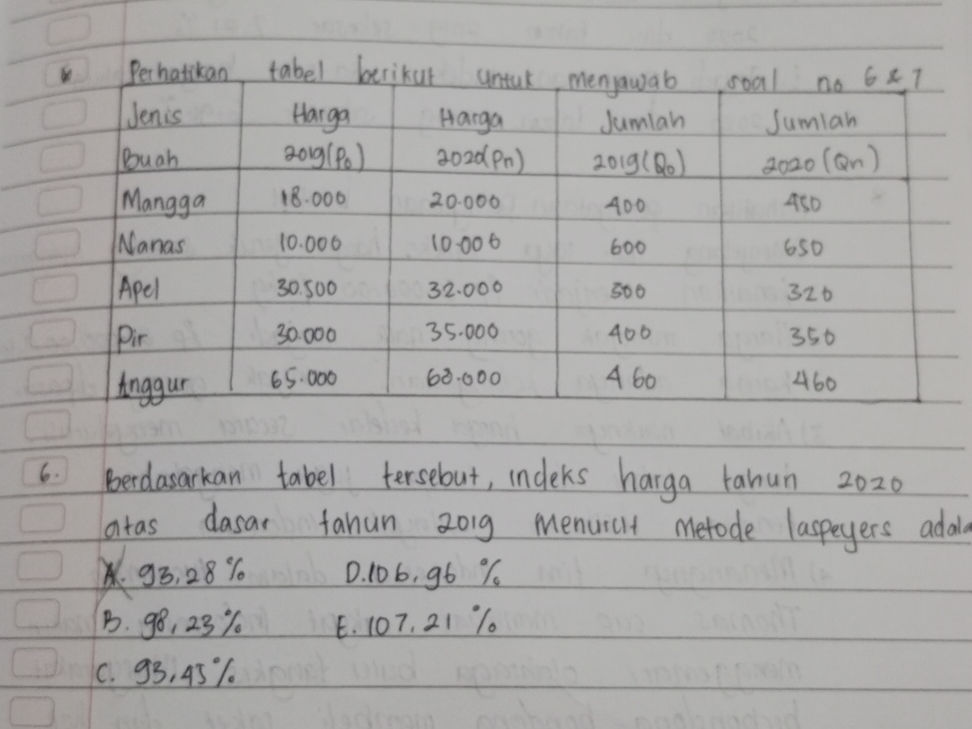 Perhatikan tabel berikut untuk menjawab soal no 6 & 7
Jenis Buah Harga 2019(Po) Harga 2020(Pn) Jumlah 2019(Qo) Jumlah 2020 (Qn)
Mangga 18.000 20.000 400 450
Nanas 10.000 10.000 600 650
Apel 30.500 32.000 300 320
Pir 30.000 35.000 400 350
Anggur 65.000 68.000 460 460
6. Berdasarkan tabel tersebut, indeks harga tahun 2020
atas dasar tahun 2019 menurut metode laspeyers adala
A. 93,28 % D. 106,96 %
B. 98,23 % E. 107,21 %
C. 93,45 %